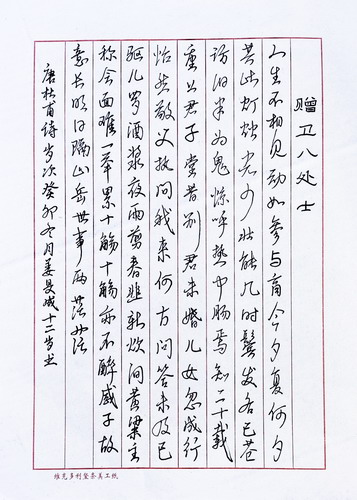 赠卫八处士
人生不相见动如参与商今夕复何夕
共此灯烛光少壮能几时鬓发各已苍
访旧半为鬼惊呼热中肠焉知二十载
重上君子堂昔别君未婚儿女忽成行
怡然敬父执问我来何方问答未及已
驱儿罗酒浆夜雨剪春韭新炊间黄粱主
称会面难一举累十觞十觞亦不醉感子故
意长明日隔山岳世事两茫茫
唐杜甫诗岁次癸卯冬月姜旻成十二岁书
维克多利竖条美工纸